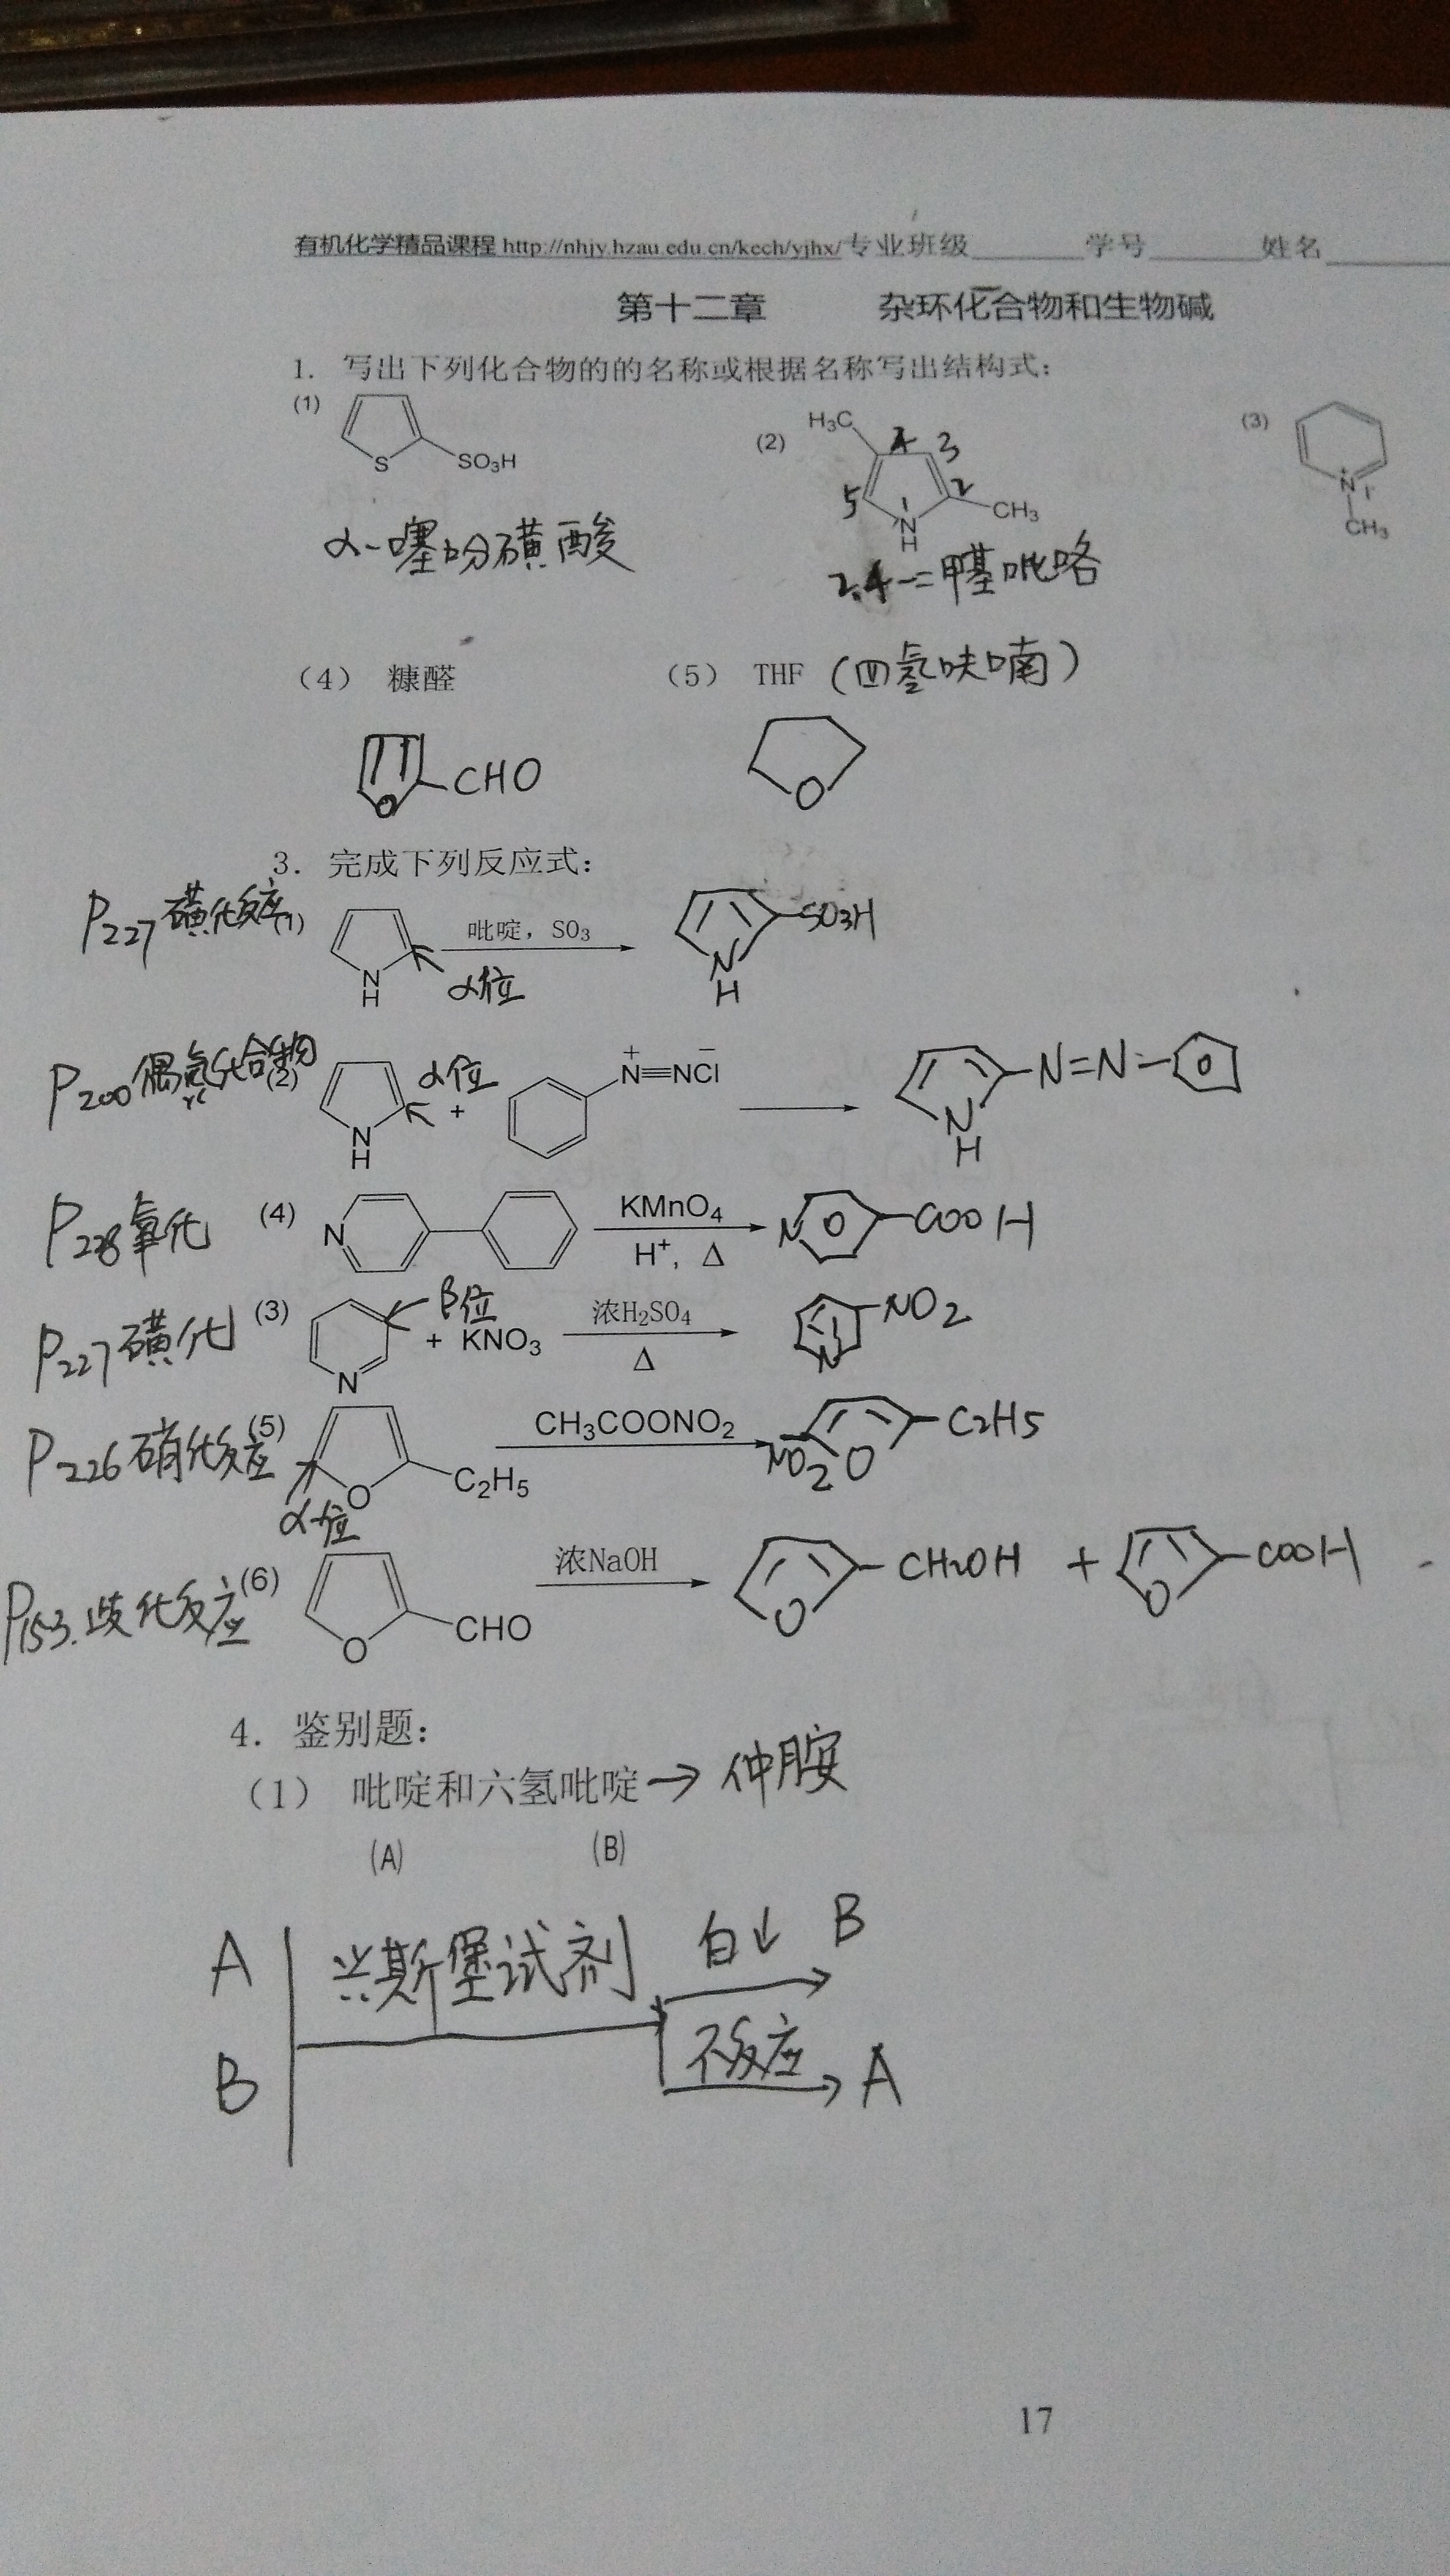 有机化学精品课程 http://nhjy.hzau.edu.cn/kech/yjhx/ 专业班级________学号________姓名________
第十二章 杂环化合物和生物碱
1. 写出下列化合物的的名称或根据名称写出结构式：
(1) S SO₃H
(2) H₃C 4 3 5 1 2 N H CH₃
(3) N⁺ I⁻ CH₃
α-噻吩磺酸
2.4-二甲基吡咯
（4） 糠醛
（5） THF (四氢呋喃)
O CHO
O
3. 完成下列反应式：
P227 磺化反应 (1) N H α位 吡啶，SO₃ N H SO3H
P200 偶氮化合物 (2) N H α位 + N⁺≡NCl⁻ N H N=N
P228 氧化 (4) N KMnO₄ H⁺, Δ N COOH
P227 磺化 (3) N β位 + KNO₃ 浓H₂SO₄ Δ N NO2
P226 硝化反应 (5) O α位 C₂H₅ CH₃COONO₂ NO2 O C2H5
P153. 歧化反应 (6) O CHO 浓NaOH O CH2OH + O COOH
4. 鉴别题：
（1） 吡啶和六氢吡啶 → 仲胺
(A) (B)
A 兴斯堡试剂 白↓ B
B 不反应 A
17